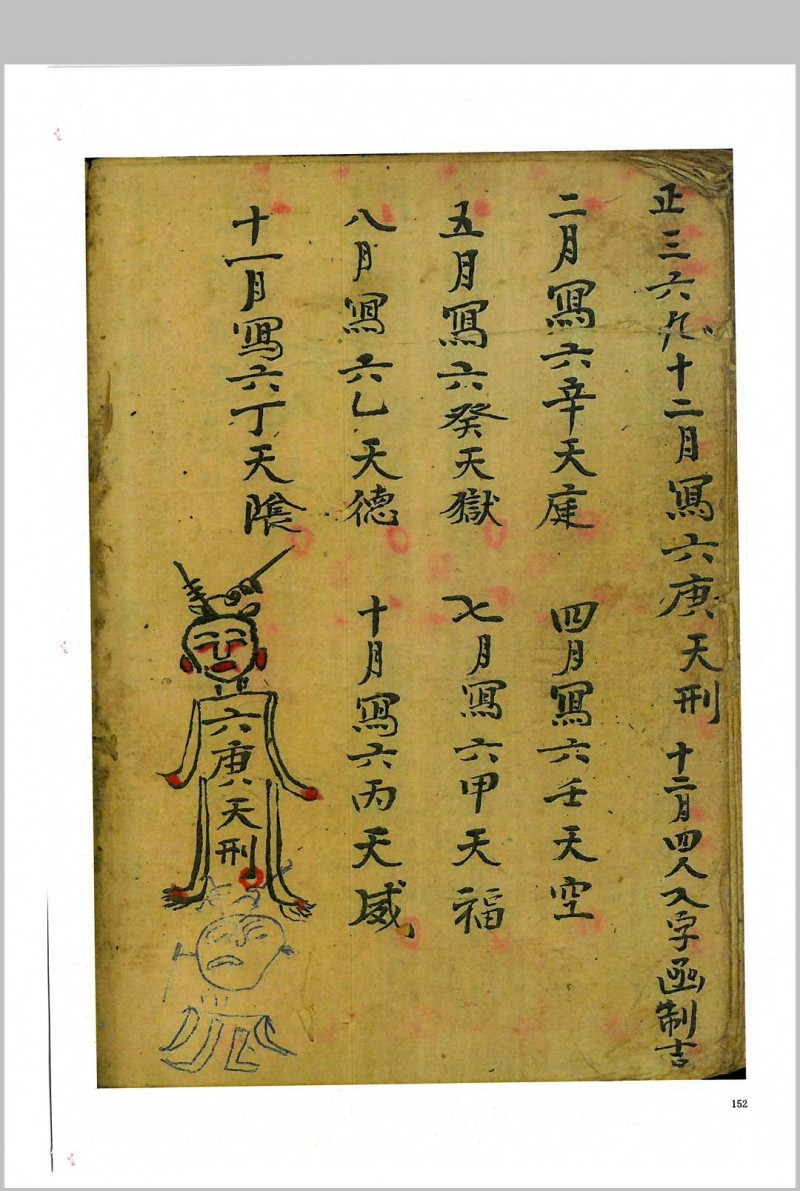 正三六九十二月寫六庚天刑 十二月四人入字函制吉
二月寫六辛天庭 四月寫六壬天空
五月寫六癸天獄 七月寫六甲天福
八月寫六乙天德 十月寫六丙天威
十一月寫六丁天陰
六庚天刑
152